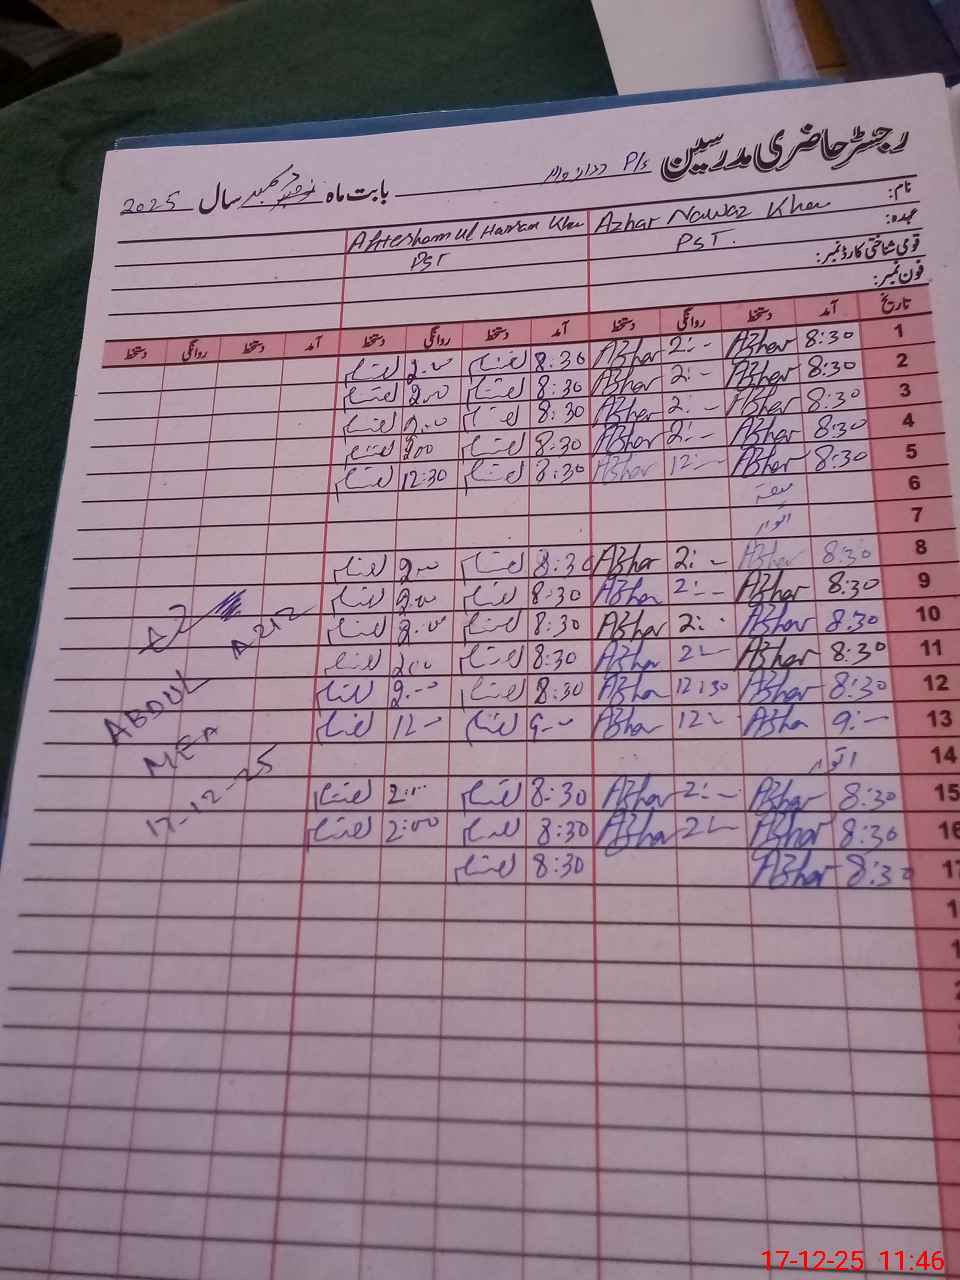 رجسٹر حاضری مدرسین P/s
بابت ماہ دسمبر سال 2025
نام: Azhar Nawaz Khan Ahtesham ul Hassan Khan
عہدہ: PST. PST
قومی شناختی کارڈ نمبر:
فون نمبر:
تاریخ آمد دستخط روانگی دستخط آمد دستخط روانگی دستخط آمد دستخط روانگی دستخط
1 8:30 Azhar 2:- Azhar 8:30 احتشام 2:00 احتشام
2 8:30 Azhar 2:- Azhar 8:30 احتشام 2:00 احتشام
3 8:30 Azhar 2:- Azhar 8:30 احتشام 2:00 احتشام
4 8:30 Azhar 2:- Azhar 8:30 احتشام 200 احتشام
5 8:30 Azhar 12:- Azhar 8:30 احتشام 12:30 احتشام
6 ہفتہ
7 اتوار
8 8:30 Azhar 2:- Azhar 8:30 احتشام 2:00 احتشام
9 8:30 Azhar 2:- Azhar 8:30 احتشام 2:00 احتشام
10 8:30 Azhar 2:- Azhar 8:30 احتشام 2:00 احتشام
11 8:30 Azhar 2- Azhar 8:30 احتشام 2:00 احتشام
12 8:30 Azhar 12:30 Azhar 8:30 احتشام 2:00 احتشام
13 9:- Azhar 12:- Azhar 9:00 احتشام 12:- احتشام
14 اتوار
15 8:30 Azhar 2:- Azhar 8:30 احتشام 2:00 احتشام
16 8:30 Azhar 2- Azhar 8:30 احتشام 2:00 احتشام
17 8:30 Azhar 8:30 احتشام
ABDUL
MEA
17-12-25
17-12-25 11:46